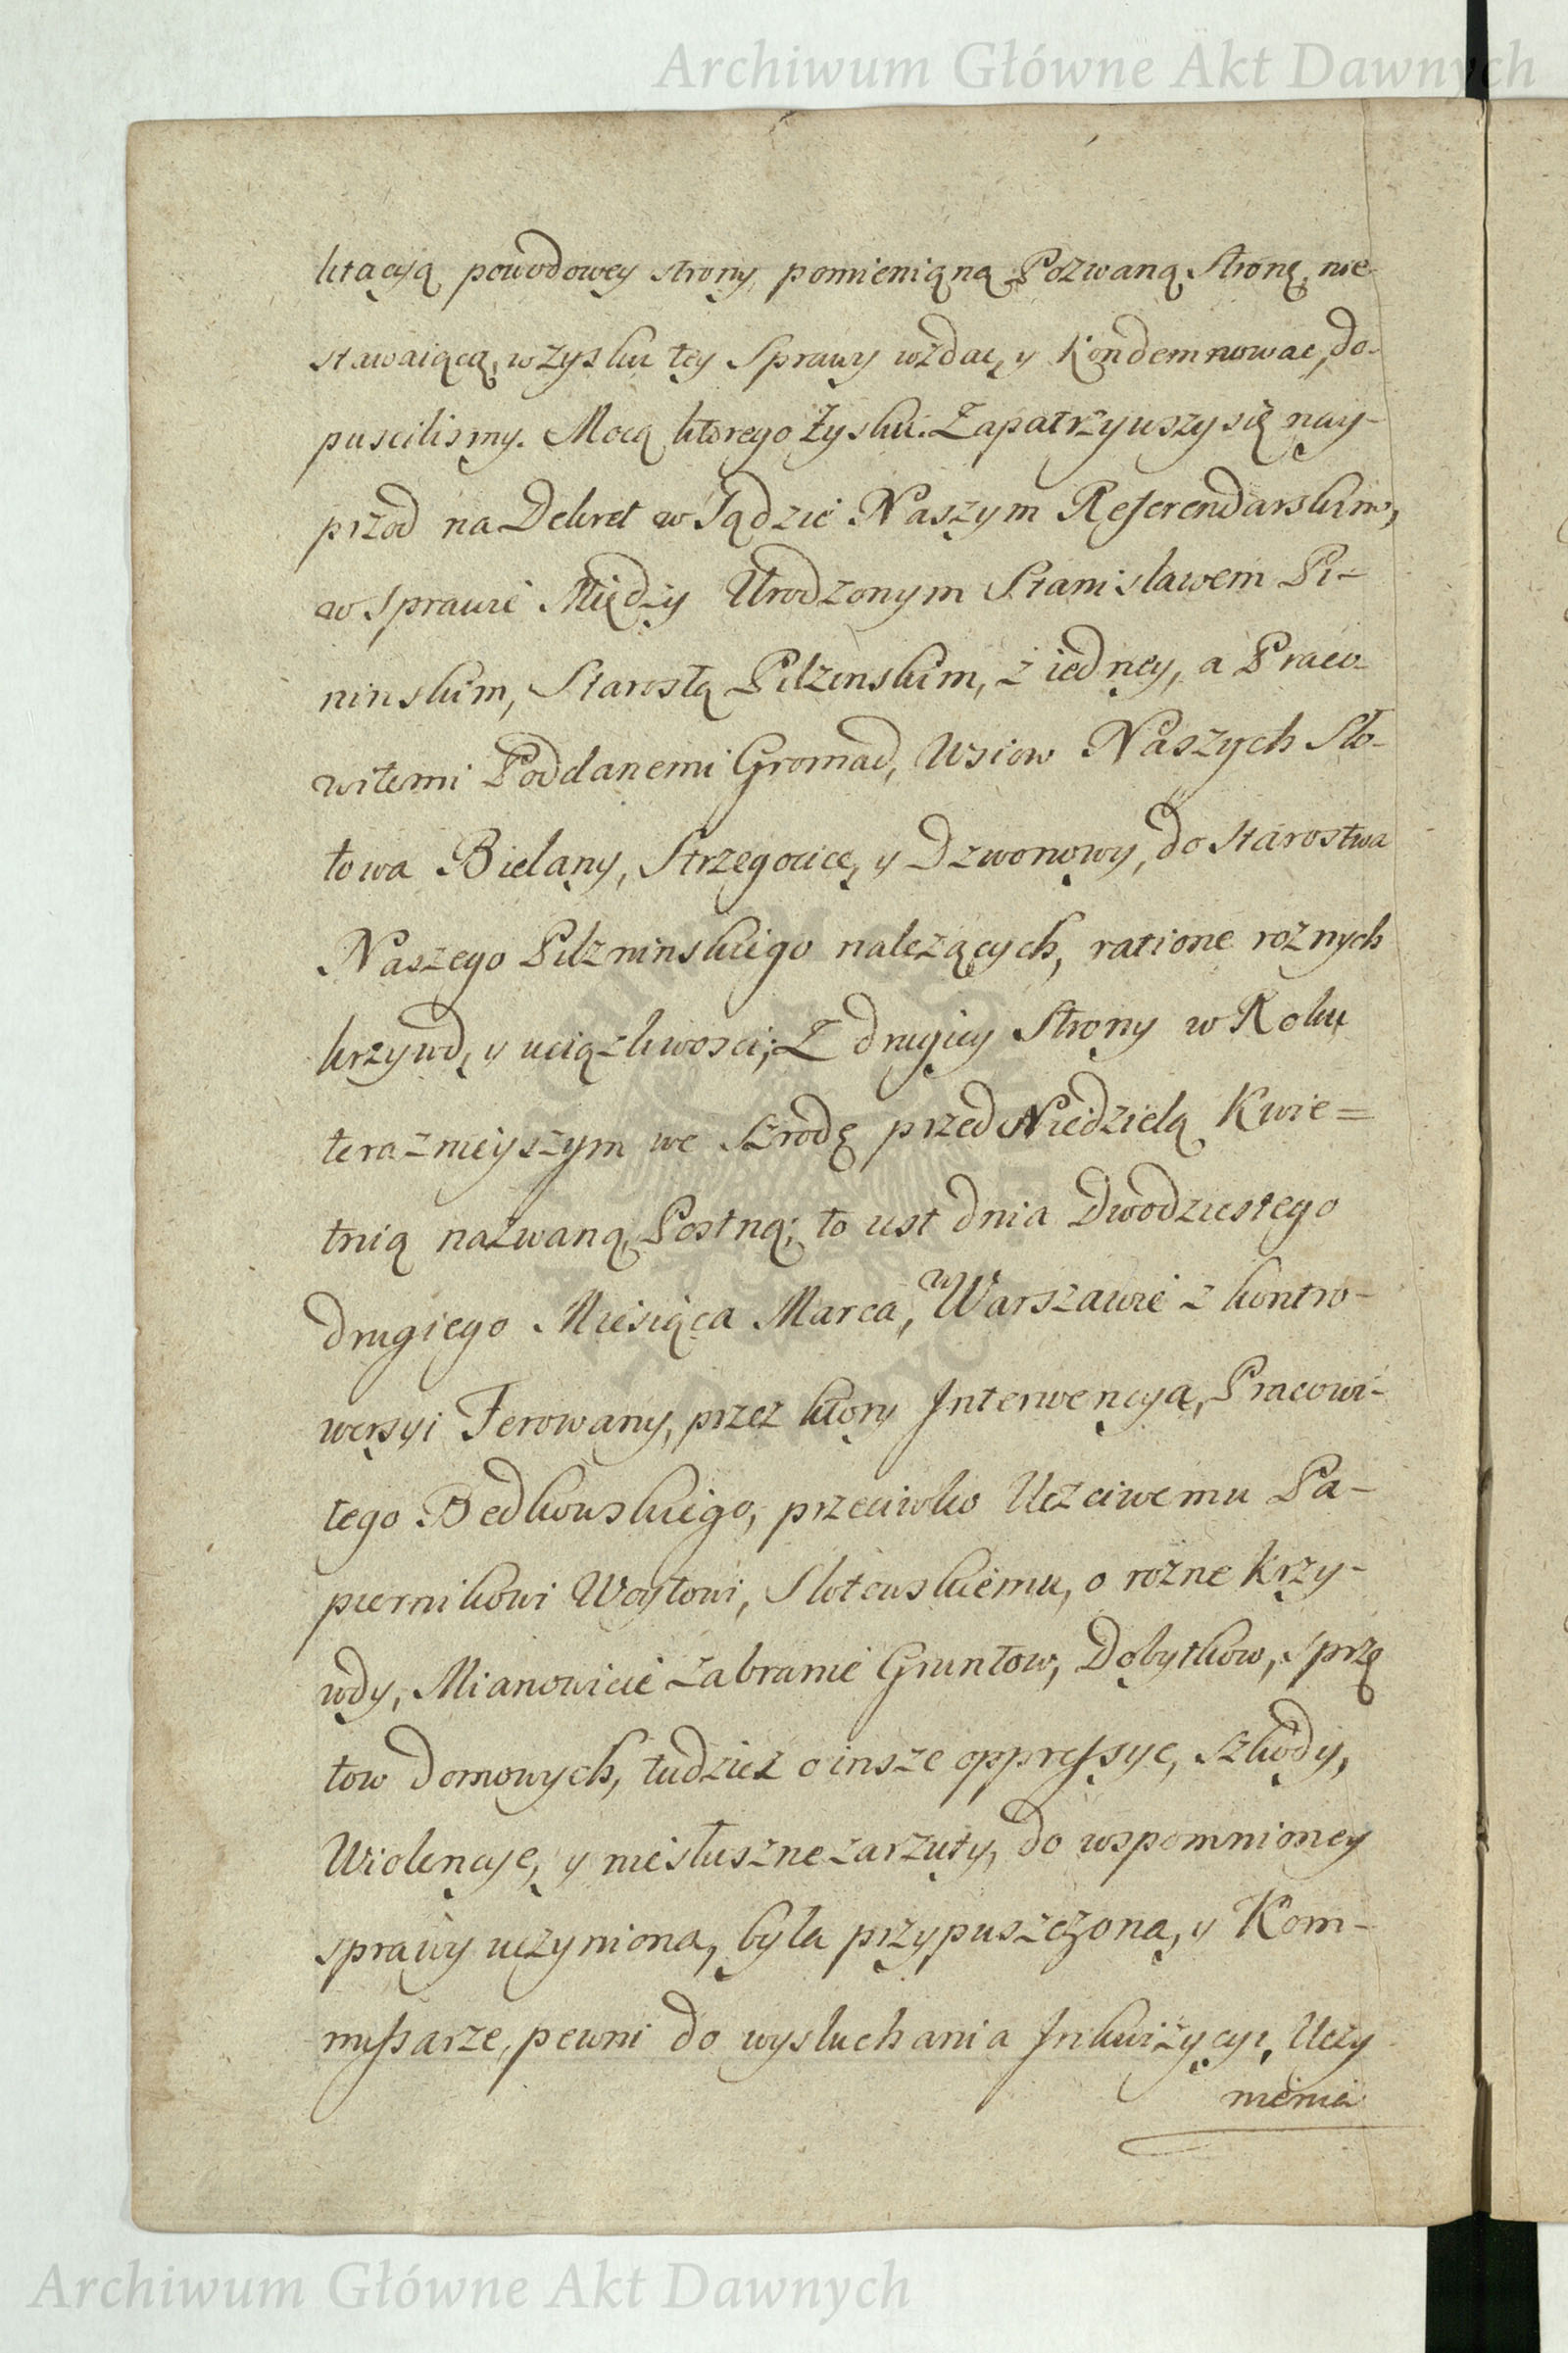 Archiwum Główne Akt Dawnych
ktacyą powodowey strony pomienioną Pozwaną Stronę nie
stawaiącą, w zysku tey Sprawy wzdac, y Kondemnowac, do-
puscilismy. Mocą ktorego Zysku. Zapatrzywszy się nay-
przod na Dekret w Sądzie Naszym Referendarskim,
w sprawie Między Urodzonym Stanisławem Pi-
ninskim, Starostą Pilzenskim, z iedney, a Praco-
witemi Poddanemi Gromad, Wsiow Naszych Sło-
towa Bielany, Strzegocice, y Dzwonowy, do Starostwa
Naszego Pilzninskiego nalezących, ratione roznych
krzywd, y uciązliwosci; Z drugiey Strony w Roku
teraznieyszym we Szrodę przed Niedzielą Kwie=
tnią nazwaną Postną; to iest dnia Dwodziestego
drugiego Miesiąca Marca, w Warszawie z kontro-
wersyi Ferowany, przez ktory Interwencya, Pracowi-
tego Bedkowskiego, przeciwko Uczciwemu Pa-
piernikowi Woytowi, Slotowskiemu, o rozne krzy-
wdy, Mianowicie zabranie Gruntow, Dobytkow, sprzę
tow domowych, tudziez o insze oppressye, szkody,
Wiolencye, y niesłuszne zarzuty, do wspomnioney
sprawy uczyniona, była przypuszczona, y Kom-
myssarze, pewni do wysłuchania Inkwizycyi, Uczy
nienia
Archiwum Główne Akt Dawnych